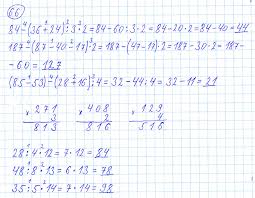 66
84-(36+24):3·2=84-60:3·2=84-20·2=84-40=44
187-(87-40-17)·2=187-(47-17)·2=187-30·2=187-
-60=127
(85-53)-(28+16):4=32-44:4=32-11=21
× 271 × 408 × 129
3 2 4
813 816 516
28:4·12=7·12=84
48:8·13=6·13=78
35:5·14=7·14=98